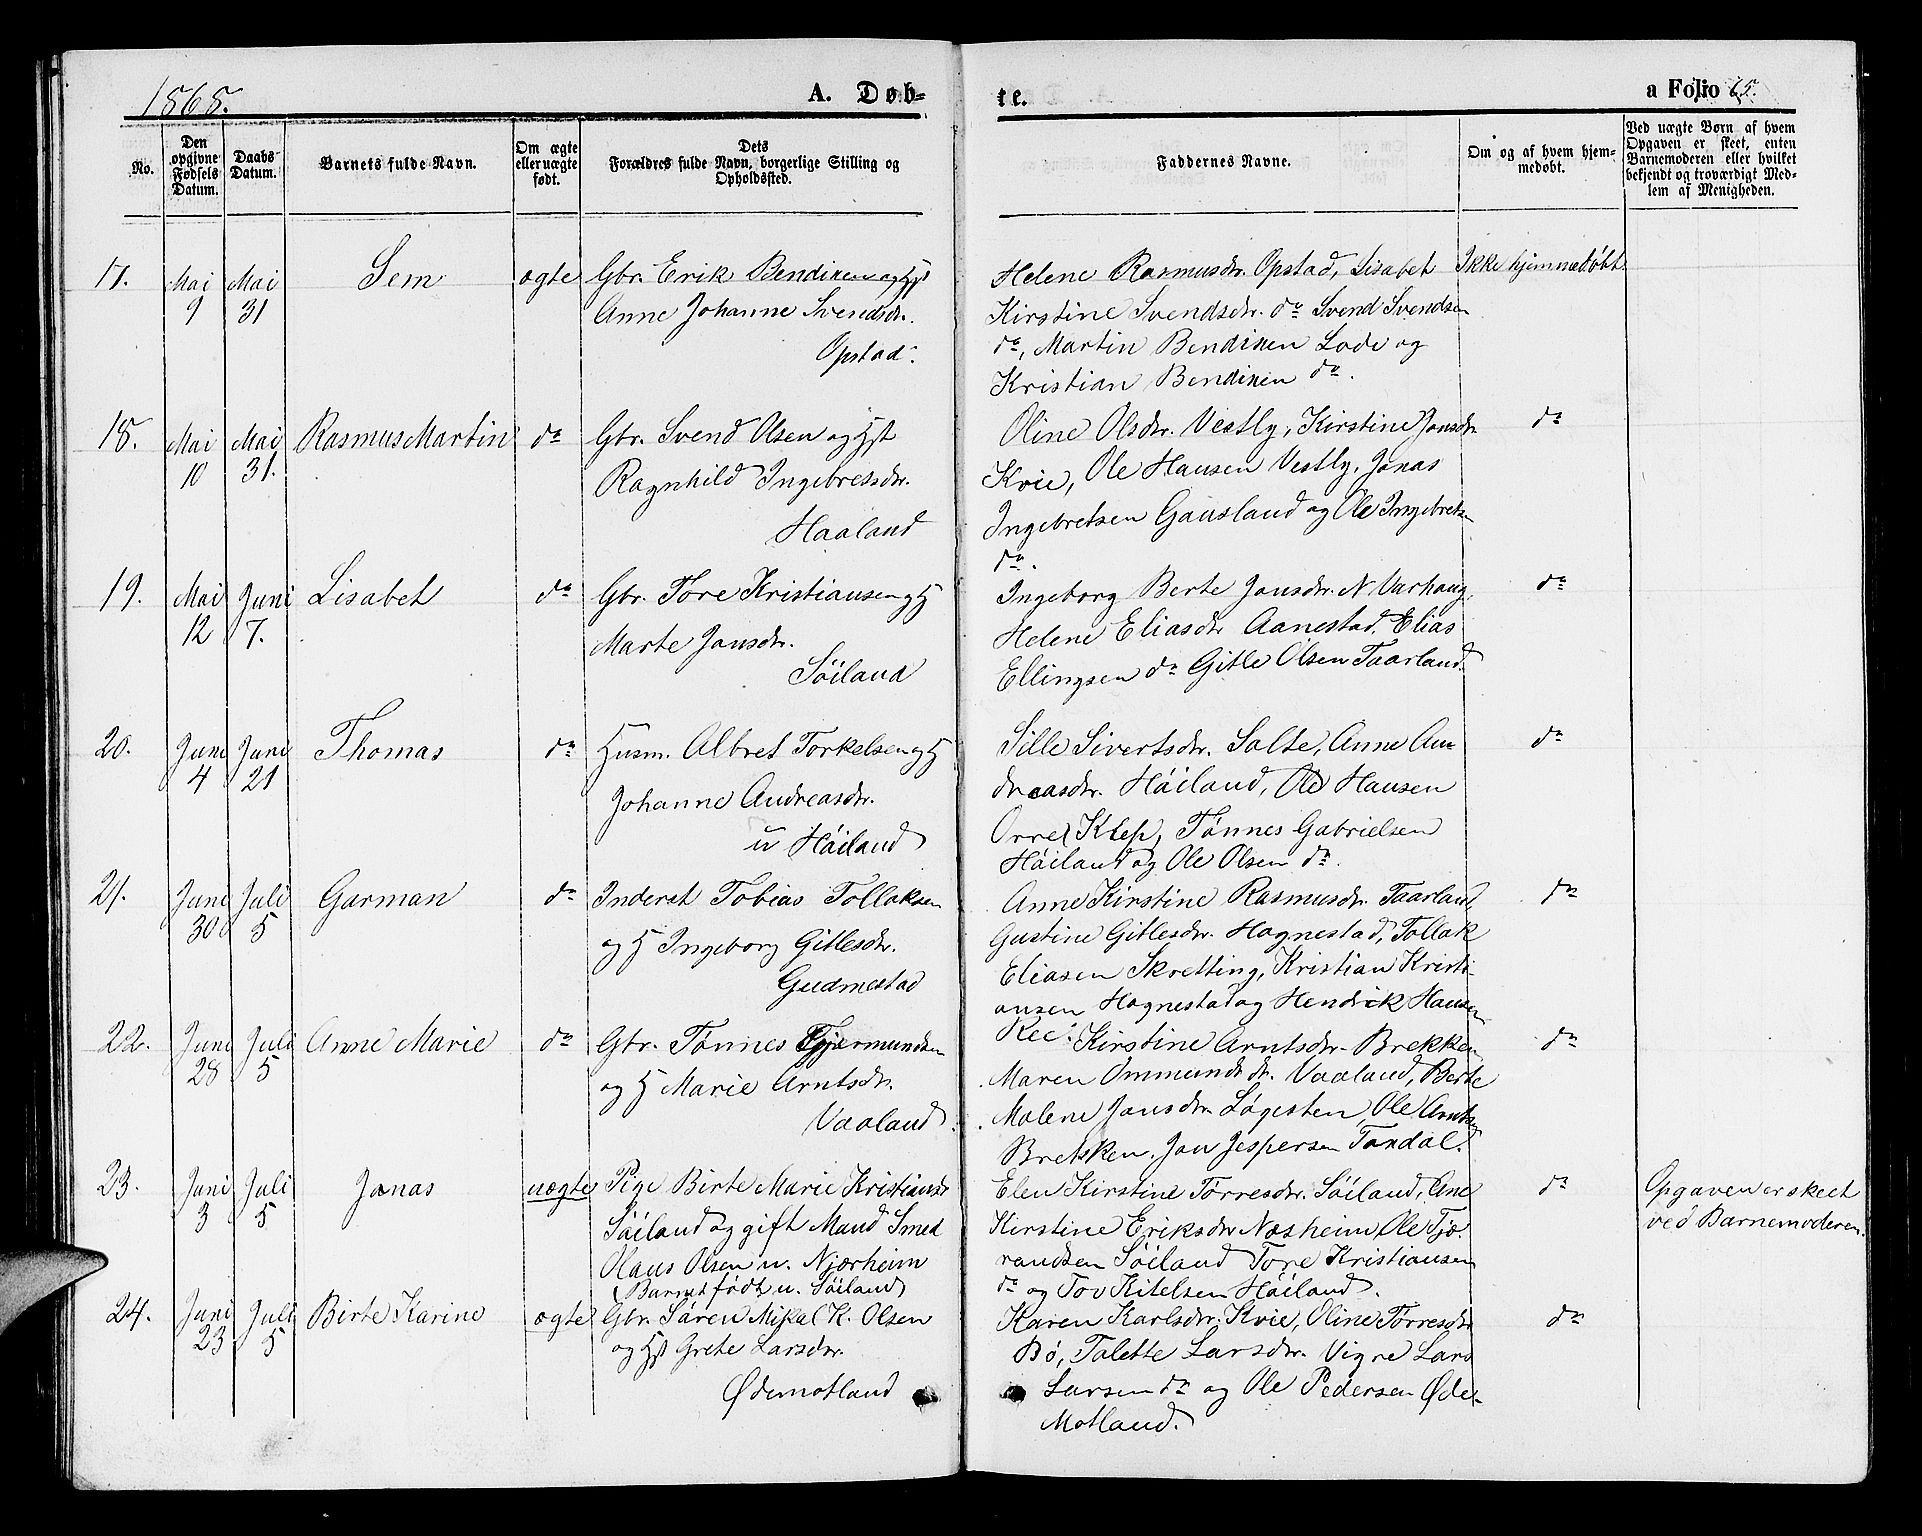 1868.
A. Døb-
te.
a Folio 65.
No.
Den opgivne Fødsels Datum.
Daabs Datum.
Barnets fulde Navn.
Om ægte eller uægte født.
Dets Forældres fulde Navn, borgerlige Stilling og Opholdssted.
Faddernes Navne.
Om og af hvem hjemmedøbt.
Ved uægte Børn af hvem Opgaven er skeet, enten Barnemoderen eller hvilket bekjendt og troværdigt Medlem af Menigheden.
17. Mai 9 Mai 31 Sem ægte
Gbr. Erik Bendixen og Hst
Anne Johanne Svendsdr.
Opstad.
Helene Rasmusdr. Opstad, Lisabet
Kirstine Svendsdr. do Svend Svendsen
do, Martin Bendixen Lode og
Kristian Bendixen do.
Ikke hjemmedøbt.
18. Mai 10 Mai 31. Rasmus Martin do
Gbr. Svend Olsen og Hst
Ragnhild Ingebretsdr.
Haaland
Oline Olsdr. Vestly, Kirstine Jonsdr.
Kvie, Ole Hansen Vestly, Jonas
Ingebretsen Gausland og Ole Ingebretsen
do.
do
19. Mai 12 Juni 7. Lisabet do
Gbr. Tore Kristiansen og H
Marte Jonsdr.
Söiland
Ingeborg Berte Jonsdr. N Varhaug,
Helene Eliasdr Aanestad, Elias
Ellingsen do Gitle Olsen Taarland.
do
20. Juni 4 Juni 21 Thomas do
Husm. Albret Torkelsen og H
Johanne Andreasdr.
u Höiland
Sille Sivertsdr. Salte, Anne An-
dreasdr. Höiland, Ole Hansen
Orre, Klep, Tönnes Gabrielsen
Höiland og Ole Olsen do.
do
21. Juni 30 Juli 5 Garman do
Inderst Tobias Tollaksen
og H Ingeborg Gitlesdr.
Gudmestad
Anne Kirstine Rasmusdr. Taarland,
Gustine Gitlesdr. Hognestad, Tollak
Eliasen Skretting, Kristian Kristi-
ansen Hognestad og Hendrik Hansen
Ree.
do
22. Juni 28 Juli 5 Anne Marie do
Gbr. Tönnes Gjermundsen
og H Marie Arntsdr.
Vaaland.
Kirstine Arntsdr. Brekken
Maren Ommundsdr. Vaaland, Berte
Malene Jonsdr. Lögesten, Ole Arntsen
Brekken, Jon Jespersen Tandal.
do
23. Juni 3 Juli 5 Jonas uægte
Pige Birte Marie Kristiansdr
Söiland og gift Mand Smed
Claus Olsen u. Njærheim
(Barnet födt u. Söiland)
Elen Kirstine Torresdr. Söiland, Ane
Kirstine Eriksdr Næsheim, Ole Tjö-
randsen Söiland Tore Kristiansen
do og Tov Kitelsen Höiland.
do
Opgaven er skeet
ved Barnemoderen.
24. Juni 23 Juli 5 Birte Karine ægte
Gbr. Sören Mikal K. Olsen
og Hst Grete Larsdr.
Ødemotland
Karen Karlsdr. Kvie, Oline Torresdr
Bö, Talette Larsdr. Vigre Lars
Larsen do og Ole Pedersen Øde-
Motland.
do